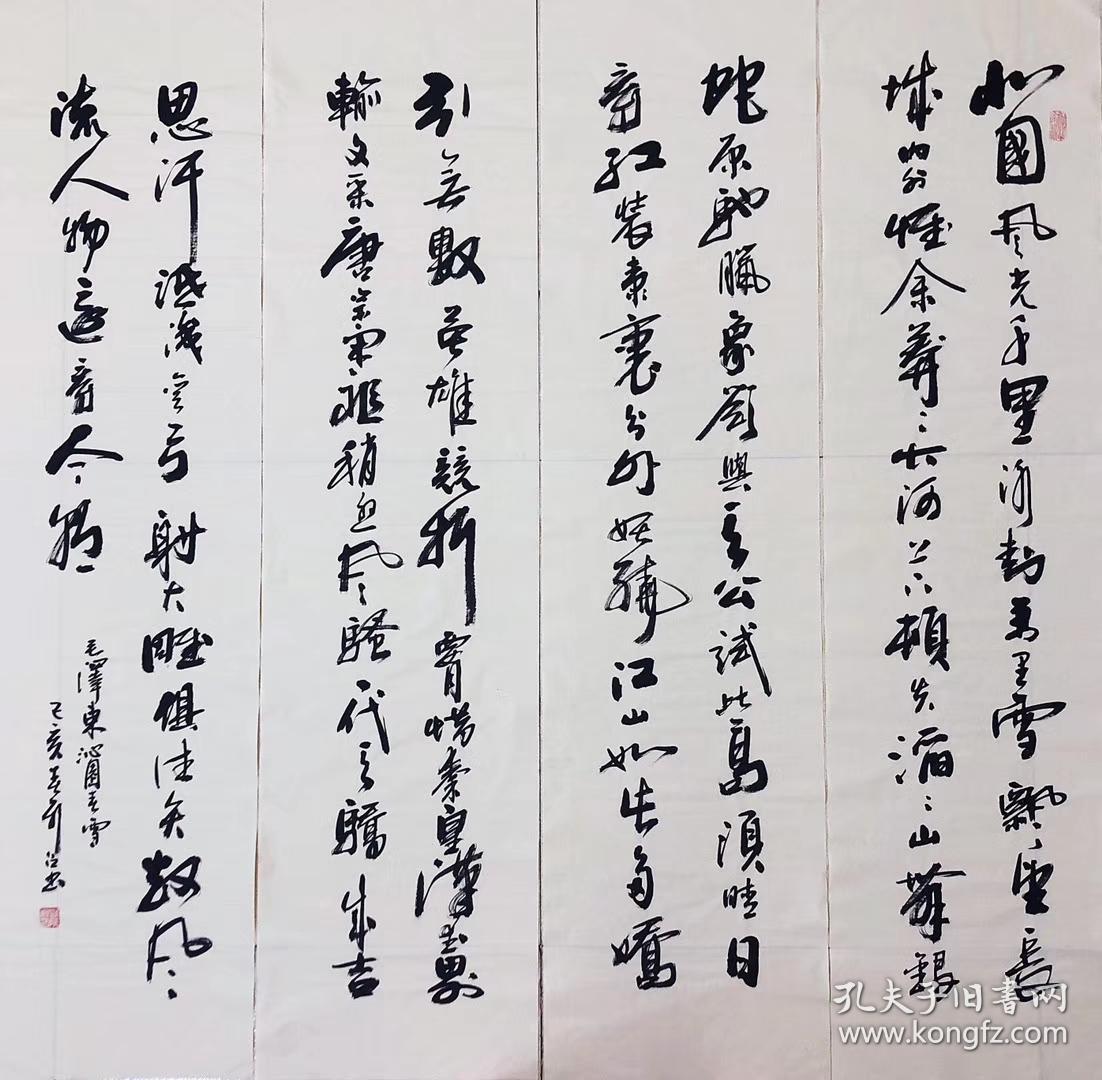 北國風光千里冰封萬里雪飄望長
城內外惟余莽々大河上下頓失滔々山舞銀
蛇原馳臘象欲與天公試比高須晴日
看紅裝素裹分外妖嬈江山如此多嬌
引無數英雄競折腰惜秦皇漢武略
輸文采唐宗宋祖稍遜風騷一代天驕成吉
思汗祗識彎弓射大雕俱往矣數風
流人物還看今朝
毛澤東沁園春雪
己亥春 書
孔夫子旧书网
www.kongfz.com